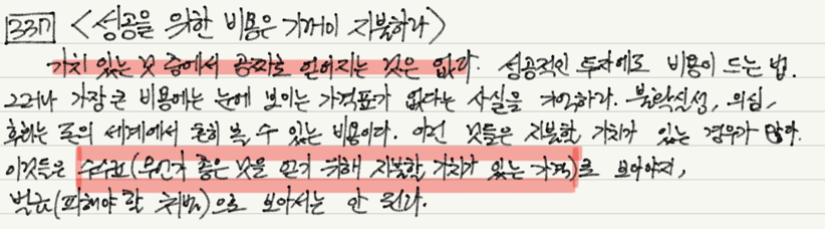 337 <성공을 위한 비용은 기꺼이 지불하라>
가치 있는 것 중에서 공짜로 얻어지는 것은 없다. 성공적인 투자에도 비용이 드는 법.
그러나 가장 큰 비용에는 눈에 보이는 가격표가 없다는 사실을 기억하라. 불확실성, 의심,
후회는 돈의 세계에서 흔히 볼 수 있는 비용이다. 이런 것들은 지불할 가치가 있는 경우가 많다.
이것들은 수수료(무언가 좋은 것을 얻기 위해 지불할 가치가 있는 가격)로 보아야지,
벌금(피해야 할 처벌)으로 보아서는 안 된다.